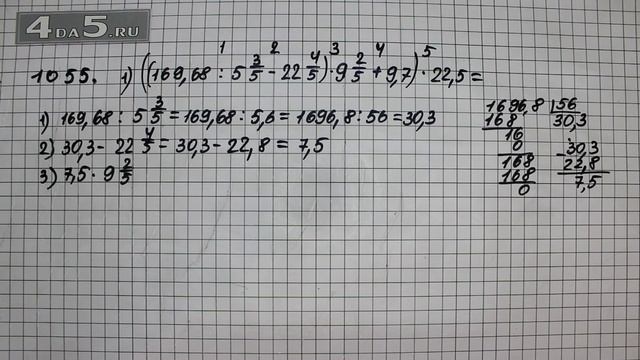 4 DA 5.RU
1 2 3 4 5
1055. 1) ((169,68 : 5 3/5 - 22 4/5) · 9 2/5 + 9,7) · 22,5 =
1) 169,68 : 5 3/5 = 169,68 : 5,6 = 1696,8 : 56 = 30,3
2) 30,3 - 22 4/5 = 30,3 - 22,8 = 7,5
3) 7,5 · 9 2/5
1696,8 | 56
168 30,3
16
0
168
168
0
- 30,3
22,8
7,5